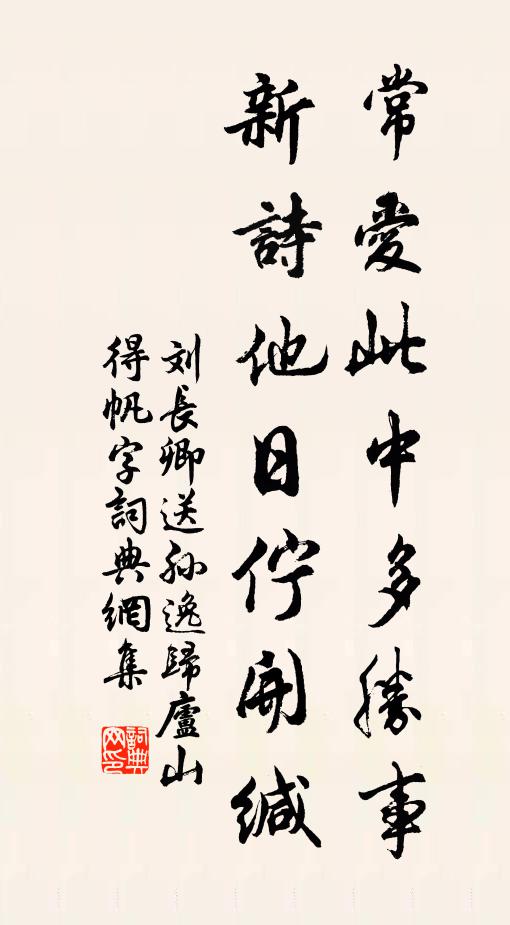 常愛此中多勝事
新詩他日佇開緘
刘長卿送孙逸歸廬山
得帆字詞典網集
詞典網印